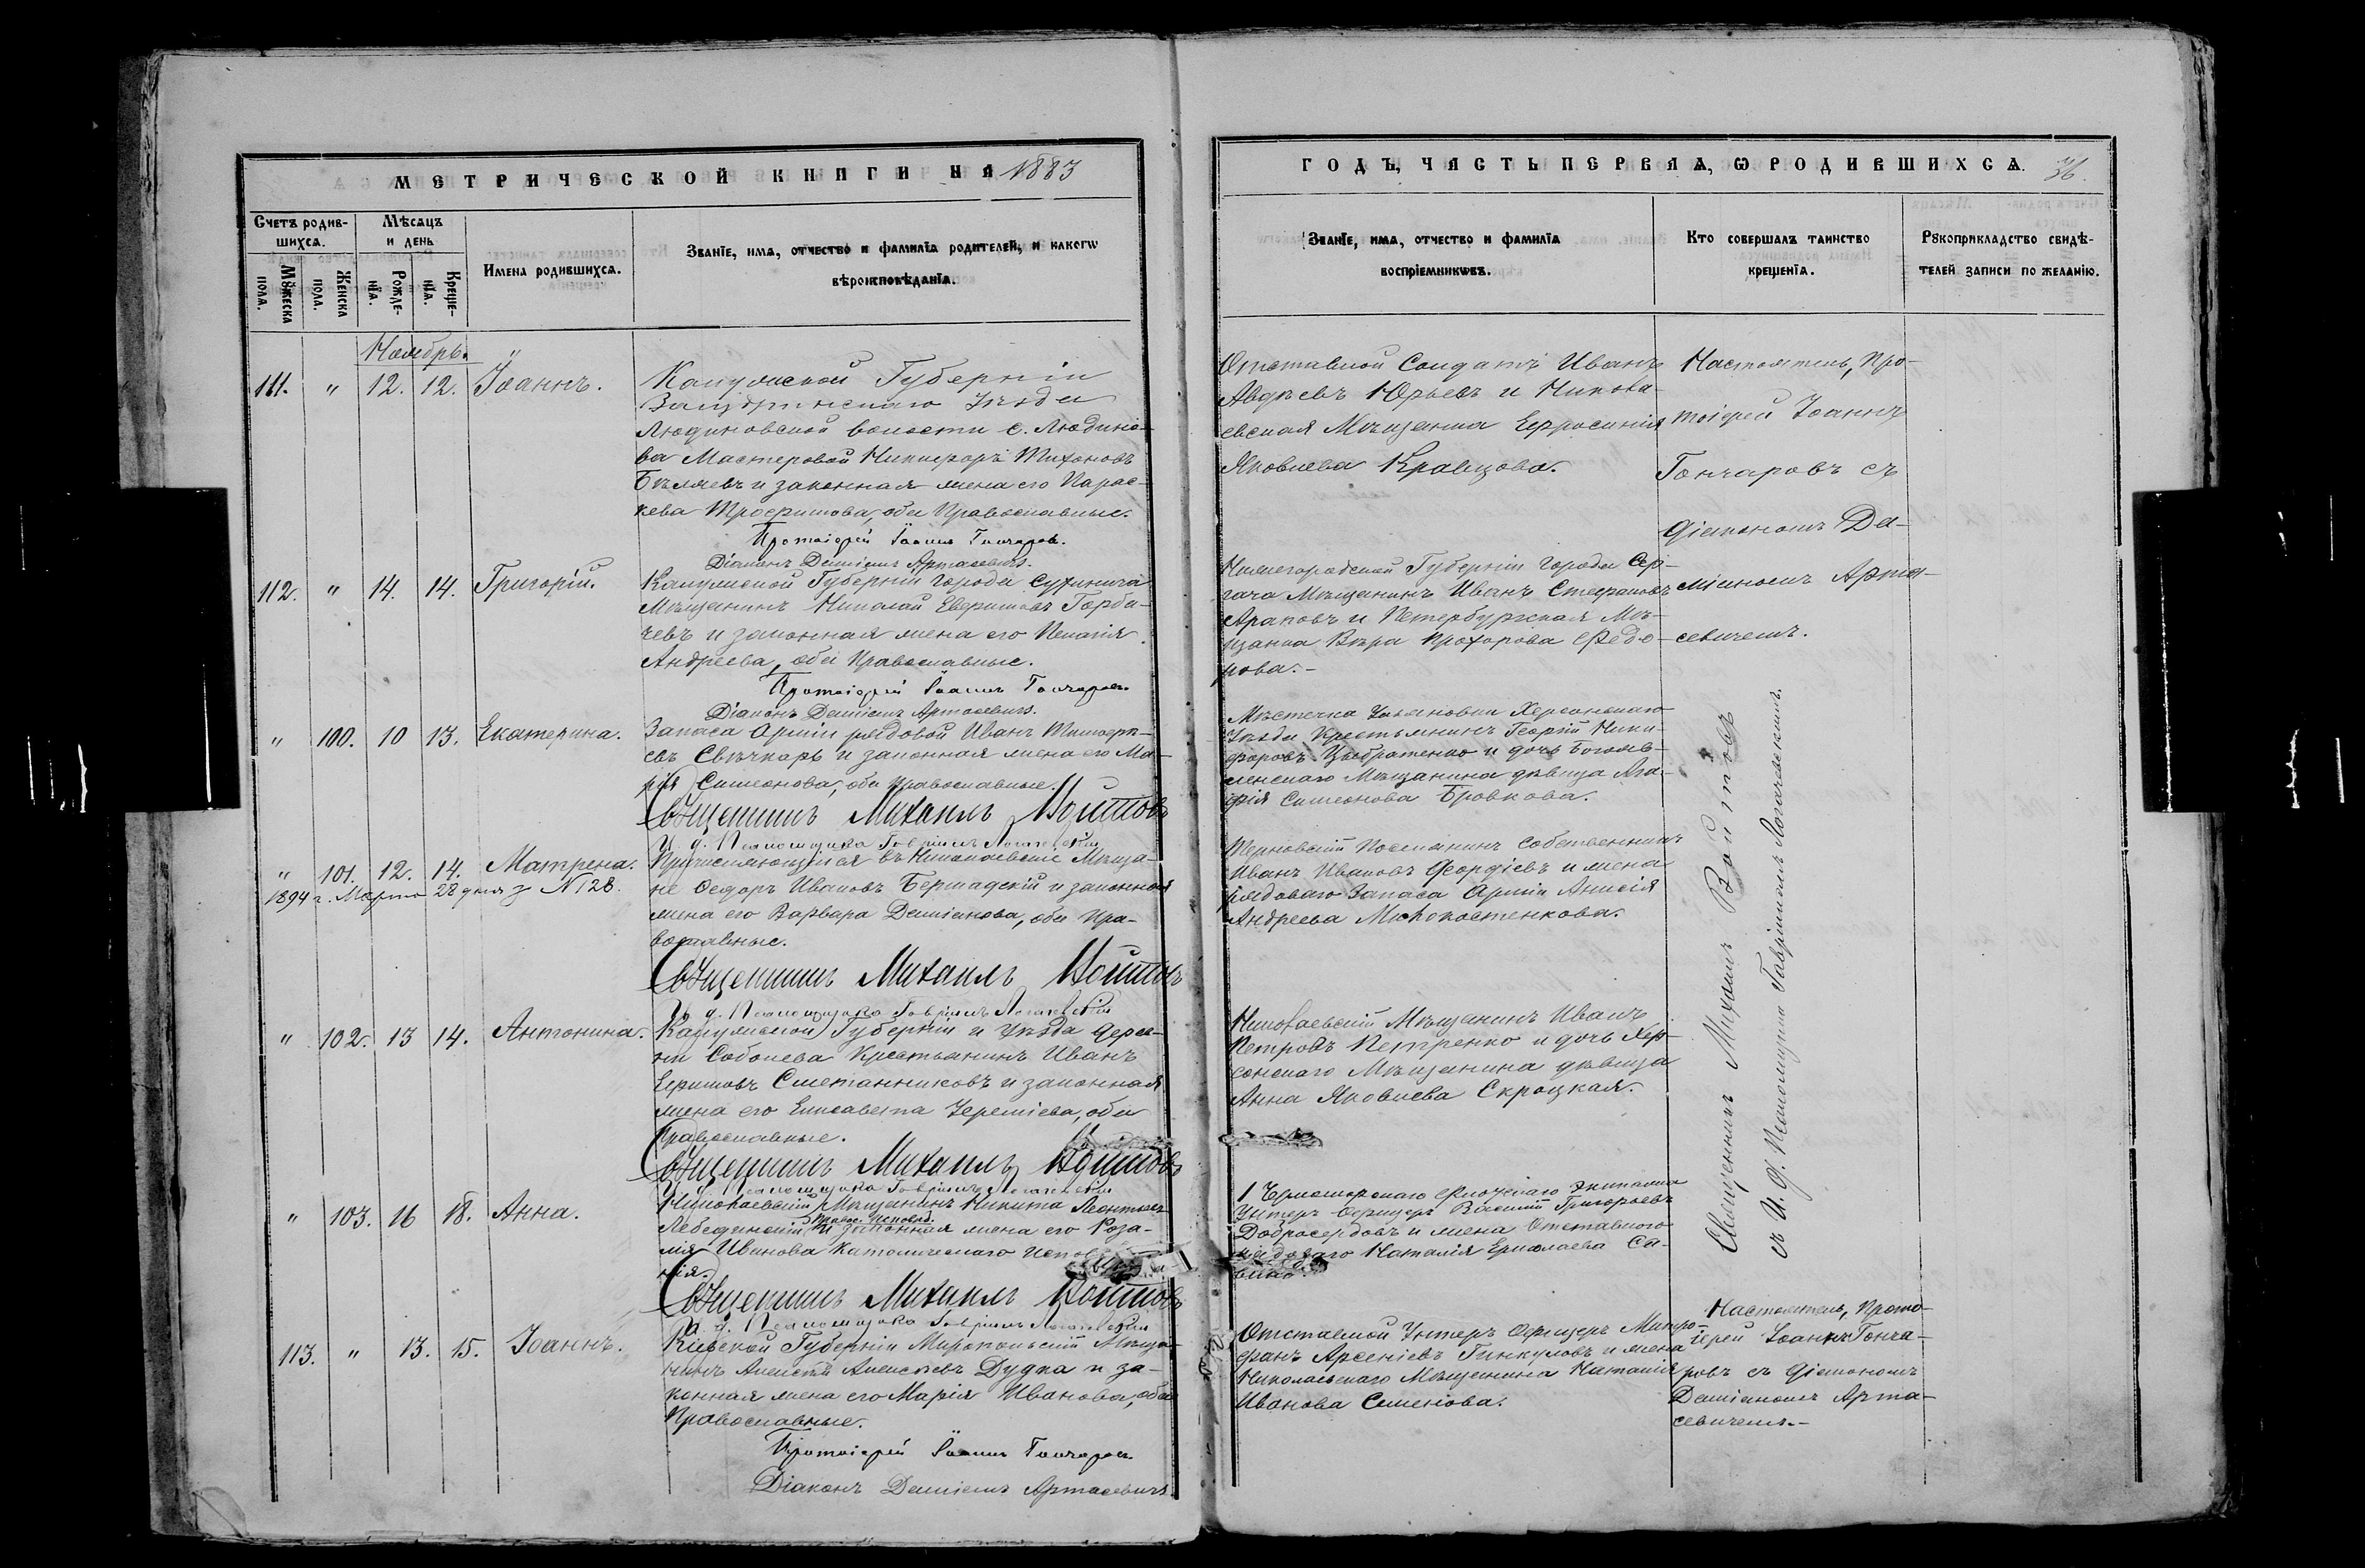 МЕТРИЧЕСКОЙ КНИГИ НА 1883
Счетъ родив-
шихсѧ.
Мѣсѧцъ
и день
Имена родившихсѧ.
Званїе, имѧ, отчество и фамилїѧ родителей, и какогѡ
вѣроисповѣданїѧ.
Мꙋжеска
пола.
Женска
пола.
Рожде-
нїѧ.
Креще-
нїѧ.
Ноябрь.
111. " 12. 12. Іоаннъ.
Калужской Губерніи
Жиздринскаго Уѣзда
Людиновской волости с. Людино-
ва Мастеровой Никифоръ Тихоновъ
Бѣляевъ и законная жена его Парас-
кева Трофимова, оба Православные.
Протоіерей Іоаннъ Гончаровъ.
Діаконъ Даміанъ Артасевичъ.
112. " 14. 14. Григорій.
Калужской Губерніи Города Сухинича
Мѣщанинъ Николай Евфимовъ Горба-
чевъ и законная жена его Пелагія
Андреева, оба Православные.
Протоіерей Іоаннъ Гончаровъ.
Діаконъ Даміанъ Артасевичъ.
" 100. 10 13. Екатерина.
Запаса Арміи рядовой Иванъ Тимофе-
евъ Свѣчкарь и законная жена его Ма-
рія Симеонова, оба Православные.
Священникъ Михаилъ Войтовъ
И. д. Псаломщика Гавріилъ Логачевскій
" 101. 12. 14. Матрена.
1894 г. Марта 28 дня № 128.
Причисляющійся въ Николаевскіе Мѣща-
не Федоръ Ивановъ Бершадскій и законная
жена его Варвара Даміанова, оба Пра-
вославные.
Священникъ Михаилъ Войтовъ
И. д. Псаломщика Гавріилъ Логачевскій
" 102. 13 14. Антонина.
Калужской Губерніи и Уѣзда дерев-
ни Соболева Крестьянинъ Иванъ
Ефимовъ Сметанниковъ и законная
жена его Елисавета Іереміева, оба
Православные.
Священникъ Михаилъ Войтовъ
И. д. Псаломщика Гавріилъ Логачевскій
" 103. 16 18. Анна.
Николаевскій Мѣщанинъ Никита Леонтьевъ
Правос. Исповѣд.
Лебединскій и законная жена его Роза-
лія Иванова Католическаго Испов
нія.
Священникъ Михаилъ Войтовъ
И. д. Псаломщика Гавріилъ Логачевскій
113. " 13. 15. Іоаннъ.
Кіевской Губерніи Миропольскій Мѣща-
нинъ Алексѣй Алексѣевъ Дудка и за-
конная жена его Марія Иванова, оба
Православные.
Протоіерей Іоаннъ Гончаровъ.
Діаконъ Даміанъ Артасевичъ.
ГОДЪ, ЧАСТЬ ПЕРВАѦ, Ѡ РОДИВШИХСѦ. 36.
Званїе, имѧ, отчество и фамилїѧ
воспрїемникѡвъ.
Кто совершалъ таинство
крещенїѧ.
Рꙋкоприкладство свидѣ-
телей записи по желанїю.
Отставной Солдатъ Иванъ
Авдѣевъ Юрьевъ и Никола-
евская Мѣщанка Ефросинія
Яковлева Кравцова.
Настоятель, Про-
тоіерей Іоаннъ
Гончаровъ съ
Діакономъ Да-
міаномъ Арта-
севичемъ.
Нижегородской Губерніи Города Сер-
гача Мѣщанинъ Иванъ Стефановъ
Араповъ и Петербургская Мѣ-
щанка Вѣра Прохорова Федо-
рова.
Мѣстечка Ульяновки Херсонскаго
Уѣзда Крестьянинъ Георгій Ники-
форовъ и дочь Богояв-
ленскаго Мѣщанина дѣвица Ага-
фія Симеонова Бровкова.
Терновскій Поселянинъ собственникъ
Иванъ Ивановъ Георгіевъ и жена
рядоваго Запаса Арміи Анисія
Андреева
Николаевскій Мѣщанинъ Иванъ
Петровъ Петренко и дочь Хер-
сонскаго Мѣщанина дѣвица
Анна Яковлева Скроцкая.
1 Черноморскаго Флотскаго Экипажа
Унтеръ-Офицеръ Василій Григорьевъ
Добросердовъ и жена Отставного
рядоваго Наталія Ермолаева Са-
Священникъ Михаилъ Войтовъ
съ И. д. Псаломщика Гавріиломъ Логачевскимъ.
Отставной Унтеръ Офицеръ Митро-
фанъ Арсеніевъ Гинкуловъ и жена
Николаевскаго Мѣщанина Наталія
Иванова Семенова.
Настоятель, Прото-
іерей Іоаннъ Гонча-
ровъ съ Діакономъ
Даміаномъ Арта-
севичемъ.